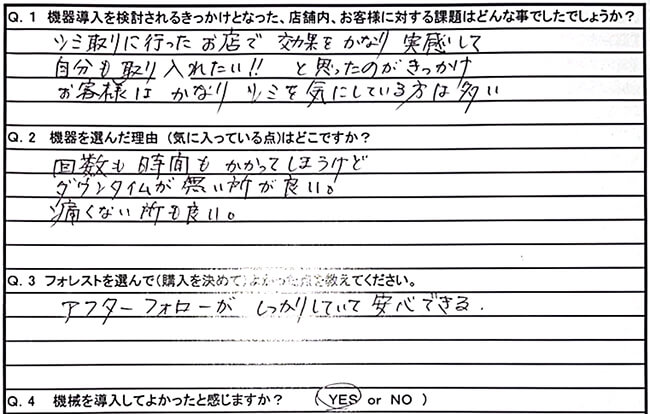 Q. 1 機器導入を検討されるきっかけとなった、店舗内、お客様に対する課題はどんな事でしたでしょうか?
シミ取りに行ったお店で 効果をかなり 実感して
自分も取り入れたい!! と思ったのがきっかけ
お客様は かなり シミを気にしている方は多い
Q. 2 機器を選んだ理由 (気に入っている点)はどこですか?
回数も 時間も かかってしまうけど
ダウンタイムが 無い所が良い。
痛くない所も良い。
Q. 3 フォレストを選んで(購入を決めて)よかった点を教えてください。
アフターフォローが しっかりしていて 安心できる.
Q. 4 機械を導入してよかったと感じますか? (YES or NO )